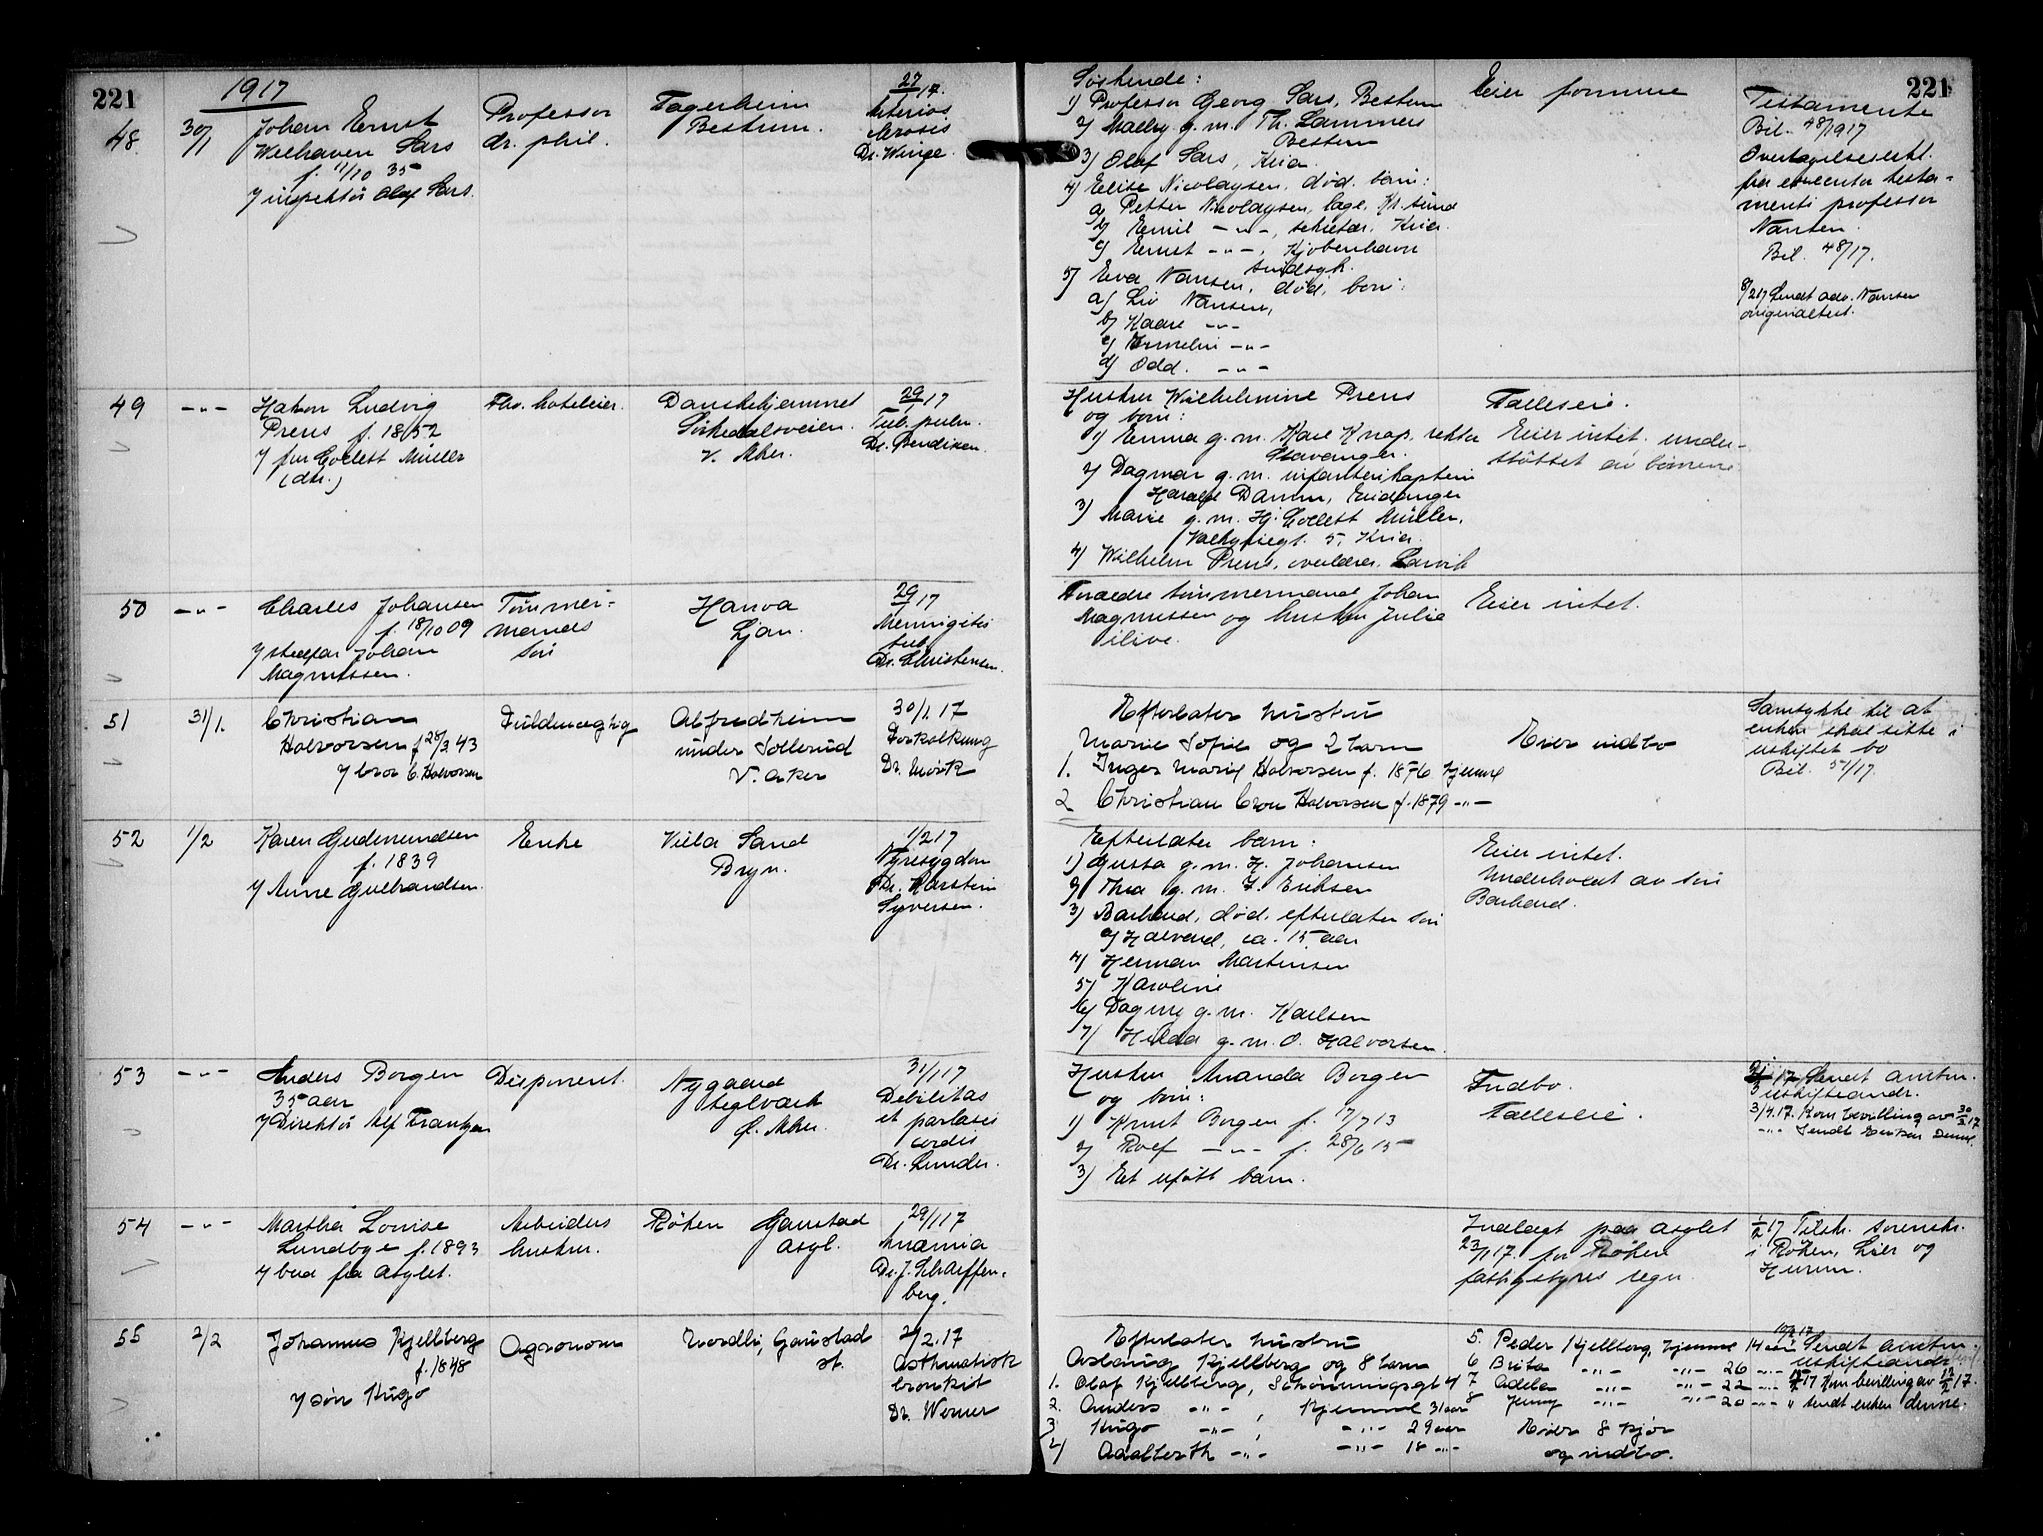 221
1917
48. 30/1 Johan Ernst
Welhaven Sars
f. 11/10 35
v/ inspektør Olaf Sars.
Professor
dr. phil.
Fagerheim
Bestum.
27/1 17.
Arterios-
klerosis
Dr. Winge.
49 -"- Hakon Ludvig
Preus f. 18/52
v/ fru Collett Müller
(dtr.)
Fhv. hoteleier.
Danskehjemmet
Sørkedalsveien.
V. Aker.
29/1 17
Tub. pulm.
Dr. Bendixen.
50 -"- Charles Johansen
f. 18/10 09
v/ stedfar Johan
Magnussen.
Tømmer-
mands
søn
Hanva
Ljan.
29/1 17
Meningitis
tub.
Dr. Christensen.
51 31/1. Christian
Halvorsen f 28/3 43
v/ bror C. Halvorsen
Fuldmægtig
Alfredheim
under Sollerud
V. Aker
30/1. 17
Forkalkning
Dr. Mørk
52 1/2 Karen Gudmundsen
f. 1839
v/ Anne Gulbrandsen.
Enke
Villa Sand
Bryn.
1/2 17
Nyresygdom
Dr. Karstein
Syversen.
53 -"- Anders Borgen
35 aar
v/ Direktør Alf Frantzen
Disponent.
Nygaard
teglverk
Ø. Aker.
31/1 17
Debilitas
et paralysis
cordis
Dr. Lunder.
54 -"- Martha Louise
Lundbye f. 1893
v/ bud fra Asylet.
Arbeiders
hustru.
Røken Gaustad
asyl.
29/1 17
Anæmia
Dr. J. Scharffen-
berg.
55 2/2 Johannes Kjellberg
f. 1848
v/ søn Hugo
Agronom
Nordli, Gaustad
st.
2/2. 17
Asthmatisk
bronkit
Dr. Werner
221
Søskende:
1) Professor Georg Sars, Bestum
2) Mally g. m. Th. Lammers
Bestum
3) Olaf Sars, Kria.
4) Elise Nicolaysen, død. barn:
a) Petter Nicolaysen, læge, Kr.sund
b) Emil -"-, sekretær, Kria.
c) Ernst -"-, Kjøbenhavn
sindsyk.
5) Eva Nansen, død, barn:
a) Liv Nansen,
b) Kaare -"-
c) Irmelin -"-
d) Odd. -"-
Eier formue
Testamente
Bil. 48/1917
Overtagelseserkl.
fra executor testa-
menti professor
Nansen.
Bil. 48/17.
8/2 17 Sendt adv. Nansen
originaltest.
Hustru Wilhelmine Preus
og barn:
1) Emma g. m. Karl Knap, rektor
Stavanger.
2) Dagmar g. m. infanterikaptein
Harald Damm, Eidanger
3) Marie g. m. Hj. Collett Müller,
Valkyriegt. 5, Kria.
4) Wilhelm Preus, overlærer, Larvik
Fælleseie.
Eier intet, under-
støttet av børnene
Forældre tømmermand Johan
Magnussen og hustru Julie
ilive.
Eier intet.
Efterlater hustru
Marie Sofie og 2 barn
1. Inger Marie Halvorsen f. 1876 hjemme
2 Christian Cron Halvorsen f. 1879 -"-
Eier indbo
Samtykke til at
enken skal sitte i
uskiftet bo
Bil. 51/17.
Efterlater barn:
1) Gusta g. m. H. Johansen
2) Thea g. m. F. Eriksen
3) Barhard, død, efterlater søn
a) Halvard, ca. 15 aar
4) Herman Martinsen
5) Karoline
6) Dagny g. m. Karlsen
7) Hilda g. m. O. Halvorsen.
Eier intet.
Underholdt av søn
Barhard.
Hustru Amanda Borgen
og barn:
1) Knut Borgen f. 17/7 13
2) Rolf -"- f. 28/6 15
3) Et ufødt barn.
Indbo.
Fælleseie.
17 Sendt amtm.
uskifteandr.
3/4. 17. Kom bevilling av 30/3 17
-"- Sendt Enken denne.
Indlagt paa asylet
23/1 17. for Røken
fattigstyres regn.
1/2 17 Tilskr. sorenskr.
i Røken, Lier og
Hurum.
Efterlater hustru
Aslaug Kjellberg og 8 barn
1. Olaf Kjellberg, Schønningsgt 4
2. Anders -"-, hjemme 31 aar
3 Hugo -"-, -"- 29 aar
4) Adalberth -"- -"- 18 -"-
5. Peder Kjellberg, hjemme 14 aar
6 Brita -"- -"- 26 -"-
7 Adele -"- -"- 22 -"-
8 Jenny -"- -"- 20 -"-
Eier 8 kjør
og indbo.
Sendt amtm.
uskifteandr.
17 Kom bevilling av 12/2 17.
" sendt enken denne.